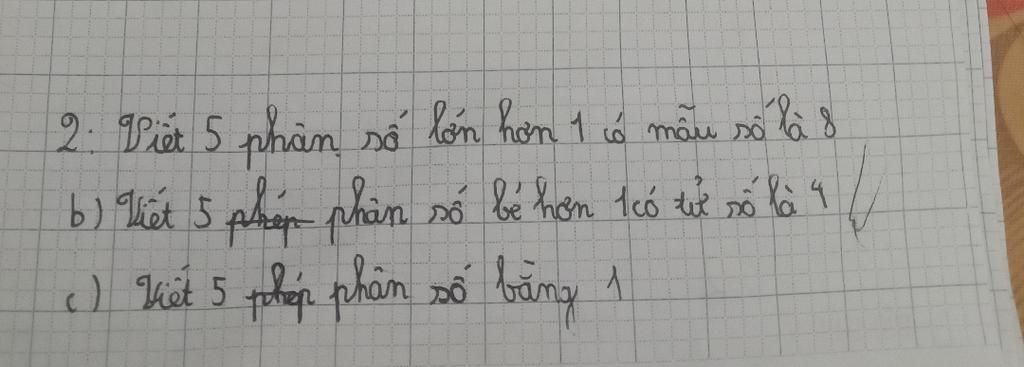 2: Viết 5 phân số lớn hơn 1 có mẫu số là 8
b) Viết 5 phép phân số bé hơn 1 có tử số là 4
c) Viết 5 phép phân số bằng 1